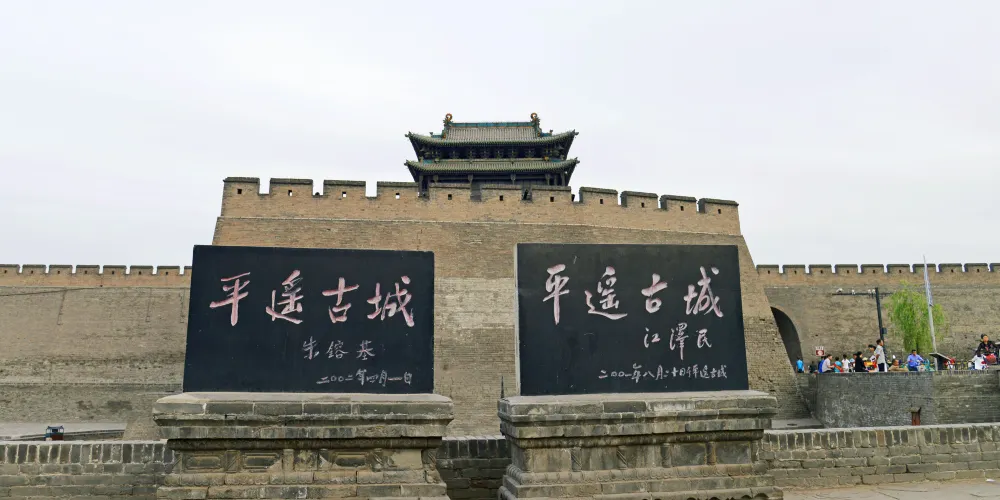 平遥古城
朱镕基
二〇〇二年四月一日
平遥古城
江澤民
二〇〇一年八月二十日平遥古城